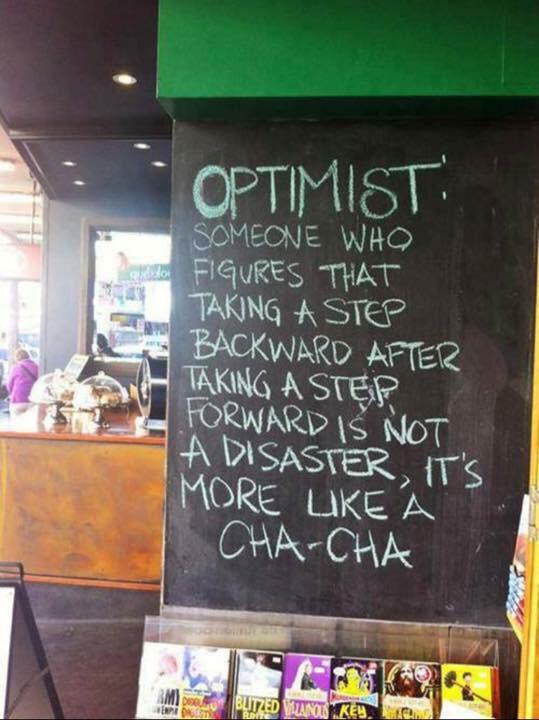 OPTIMIST:
SOMEONE WHO
FIGURES THAT
TAKING A STEP
BACKWARD AFTER
TAKING A STEP
FORWARD IS NOT
A DISASTER, IT'S
MORE LIKE A
CHA-CHA
BLITZED
VILLAINOUS
KEY